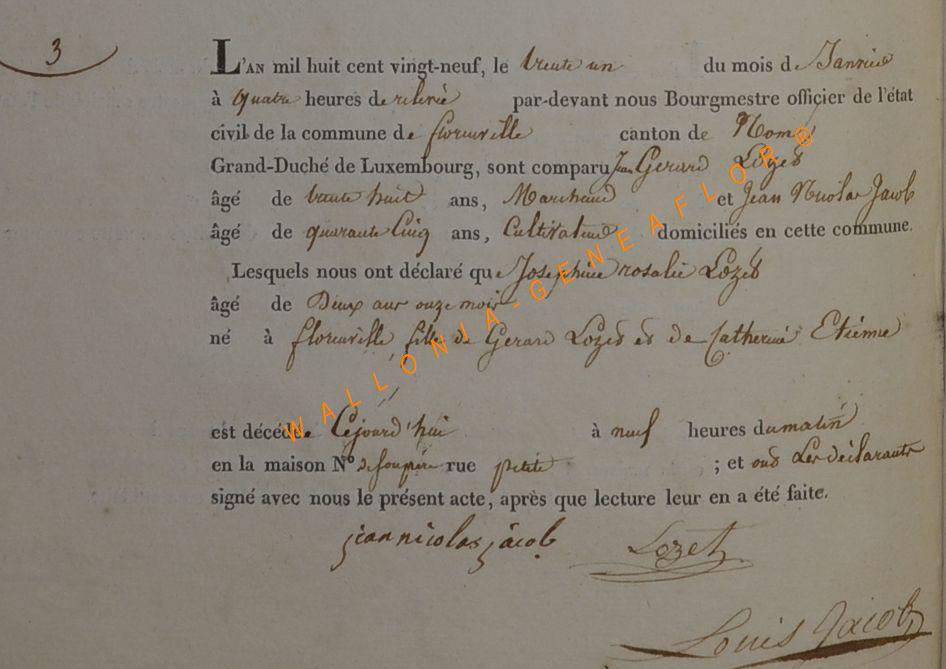 3
L'AN mil huit cent vingt-neuf, le trente un du mois de Janvier
à quatre heures de relevée par-devant nous Bourgmestre officier de l'état
civil de la commune de florenville canton de
Grand-Duché de Luxembourg, sont comparu Jean Gerard Lozet
âgé de trente huit ans, Marchand et Jean Nicolas Jacob
âgé de quarante Cinq ans, Cultivateur domiciliés en cette commune.
Lesquels nous ont déclaré que Josephine rosalie Lozet
âgé de Deux ans onze mois
né à florenville fille de Gerard Lozet et de Catherine Etienne
est décédée Cejourd'hui à neuf heures du matin
en la maison N° de son père rue petite ; et ont Les déclarants
signé avec nous le présent acte, après que lecture leur en a été faite.
jean nicolas jacob Lozet
Louis Jacob
WALLONIA-GENEAFLOR®